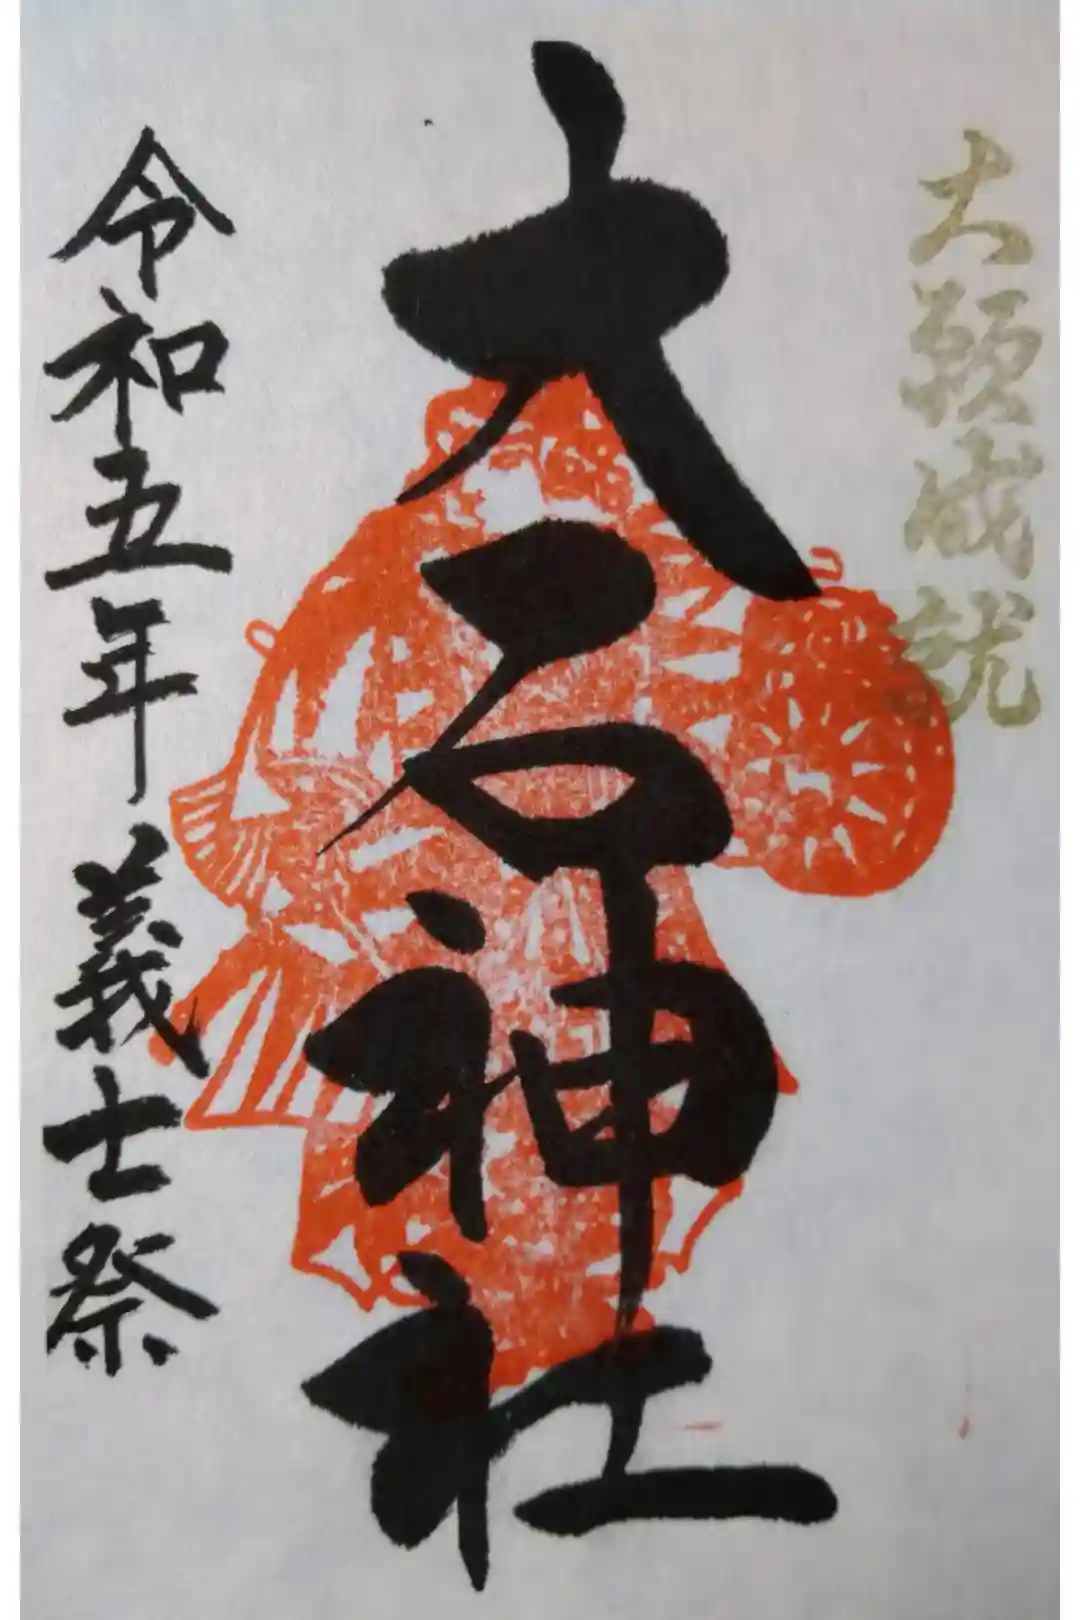 大願成就
大石神社
令和五年義士祭